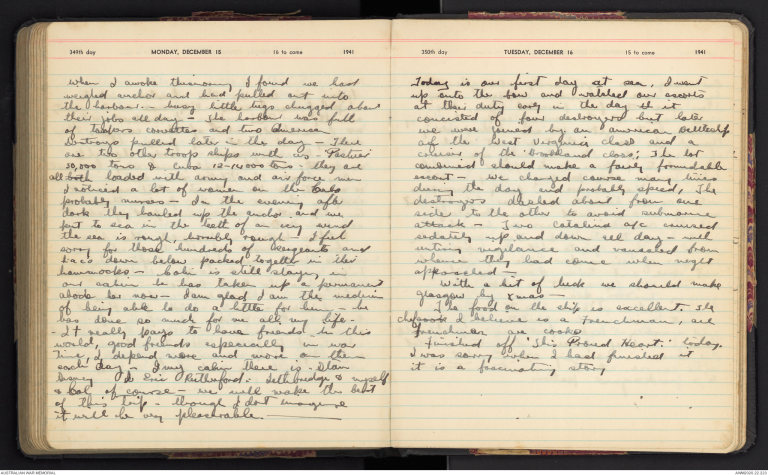 349th day MONDAY, DECEMBER 15 16 to come 1941
When I awoke this morning I found we had
weighed anchor and had pulled out into
the harbour - busy little tugs chugged about
their jobs all day - The harbour was full
of corvettes and two American
Destroyers pulled later in the day - There
are two other troop ships with us 'Pasteur'
30,000 tons & 12-14000 tons: they are
all both loaded with army and air force men
I noticed a lot of women on the
probably nurses - In the evening after
dark they hauled up the anchor and we
put to sea in the teeth of an icy wind
the sea is rough, horribly rough - I feel
sorry for those hundreds of sergeants and
L.A.C's down below packed together in their
hammocks - is still staying in
our cabin he has taken up a permanent
abode here now - I am glad I am the medium
of being able to do a little for him - he
has done so much for me all my life -
- It really pays to have friends in this
world, good friends especially in war
time, I depend more and more on them
each day - In my cabin there is -
& Eric Rutherford - Lethbridge & myself
& of course - we will make the best
of this trip - though I dont imagine
it will be very pleasurable.
350th day TUESDAY, DECEMBER 16 15 to come 1941
Today is our first day at sea. I went
up onto the bow and watched our escorts
at their duty early in the day it
consisted of four destroyers but later
we were joined by an American Battleship
of the West Virginia class and a
cruiser of the class; The lot
combined should make a fairly formidable
escort - we changed course many times
during the day and probably speed, The
destroyers dashed about from one
side to the other to avoid submarine
attack - Two Catalina a/c cruised
sedately up and down all day with
untiring vigilance and vanished from
whence they had come when night
approached -
With a bit of luck we should make
Glasgow by Xmas -
The food on the ship is excellent. The
chef I believe is a Frenchman, all
Frenchmen are cooks
Finished off 'This Proud Heart' today.
I was sorry when I had finished it
it is a fascinating story
AUSTRALIAN WAR MEMORIAL